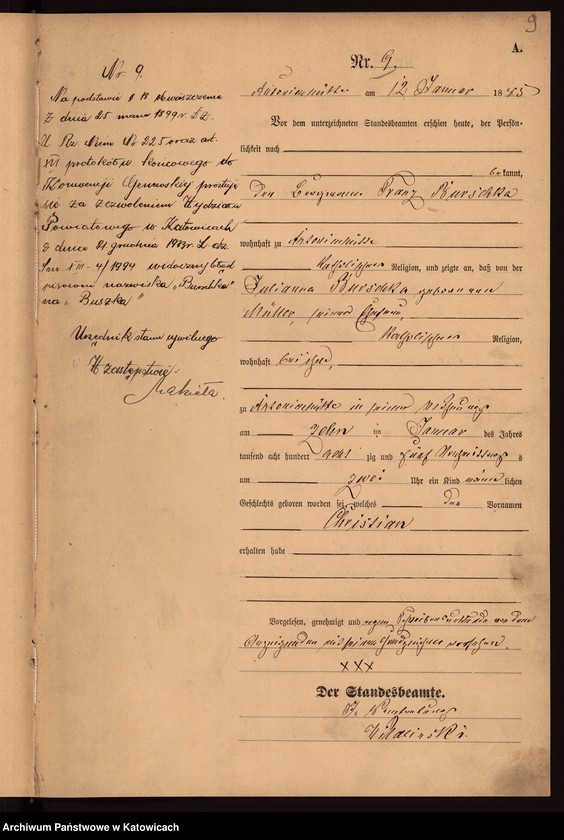 9
A.
Nr. 9.
Na podstawie § 18 obwieszczenia
z dnia 25. marca 1899 r. Dz.
U. Rz. Niem. Nr 225 oraz art.
XVI protokółu końcowego do
Konwencji Genewskiej prostuje
się za zezwoleniem Wydziału
Powiatowego w Katowicach
z dnia 21 grudnia
widoczny błąd
pisowni nazwiska
na „Buszka"
Urzędnik stanu cywilnego
W zastępstwie:
Nr. 9.
Antonienhütte am 12 Januar 1885
Vor dem unterzeichneten Standesbeamten erschien heute, der Persön-
lichkeit nach
bekannt,
der Bergmann Franz Burschka
wohnhaft zu Antonienhütte
katholischer Religion, und zeigte an, daß von der
Julianna Burschka geborenen
Müller, seiner Ehefrau,
katholischer Religion,
wohnhaft bei ihm,
zu Antonienhütte in seiner Wohnung
am zehn ten Januar des Jahres
tausend acht hundert acht zig und fünf Vormittags
um zwei Uhr ein Kind männlichen
Geschlechts geboren worden sei, welches den Vornamen
Christian
erhalten habe
Vorgelesen, genehmigt und wegen Schreibensunkunde von dem
Anzeigenden mit seinem Handzeichen versehen.
XXX
Der Standesbeamte.
In Vertretung
Archiwum Państwowe w Katowicach